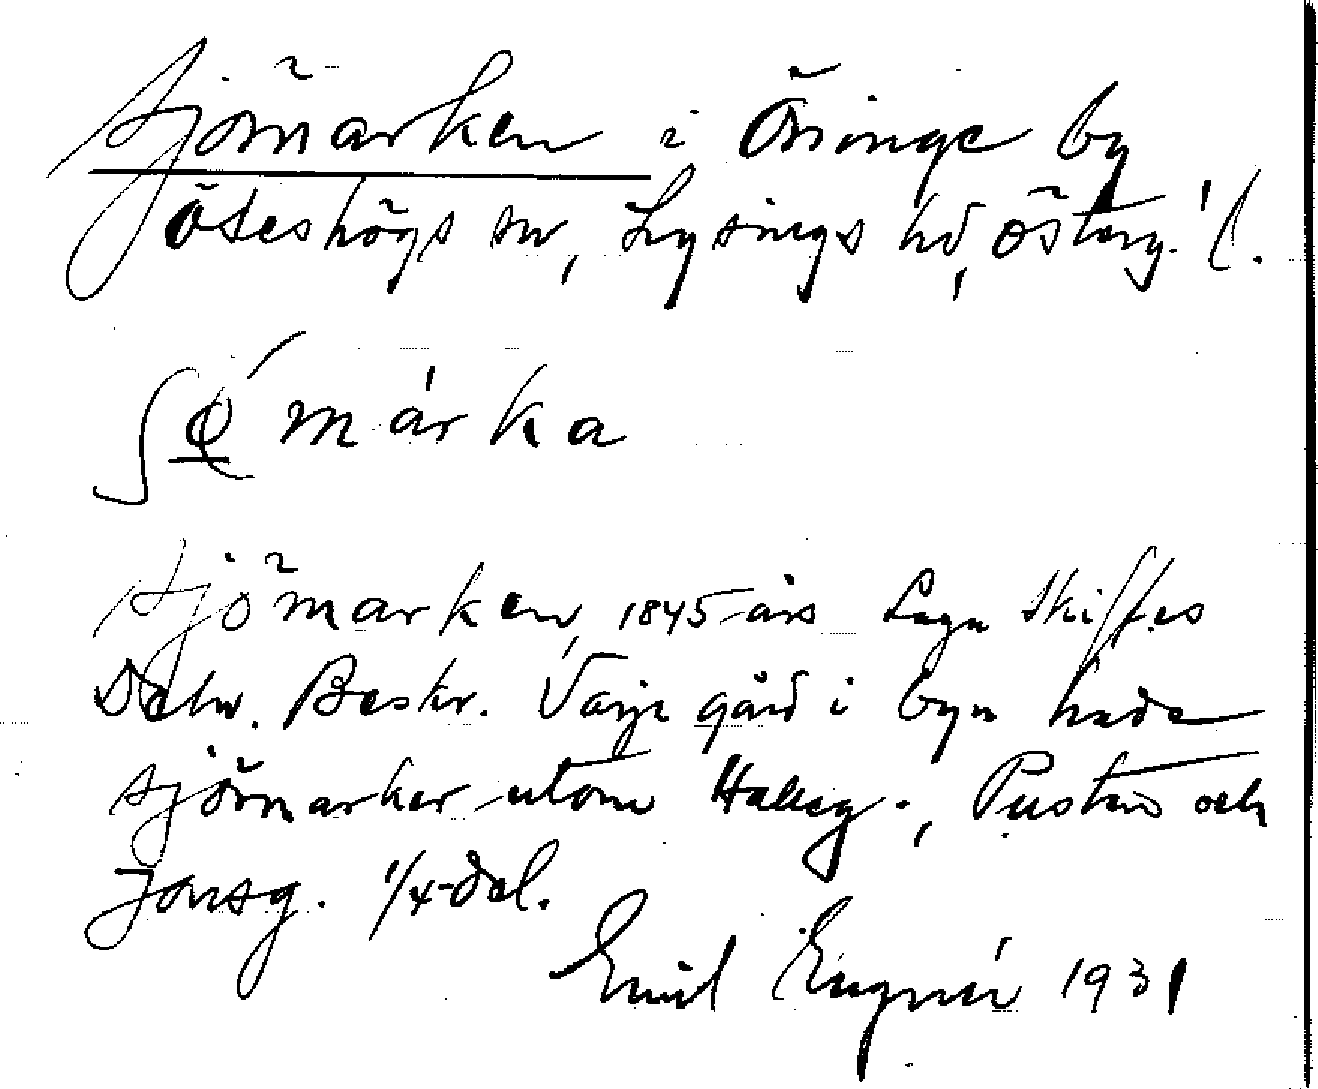 Sjömarken i Öninge by
Ödeshögs sn, Lysings hd, Österg. l.
ʃö́ márka
Sjömarken, 1845 års Laga Skiftes
Deln. Beskr. Varje gård i byn hade
sjömarker utom Haleg., Pusten och
Jonsg. 1/4-del.
Emil Engnér 1931